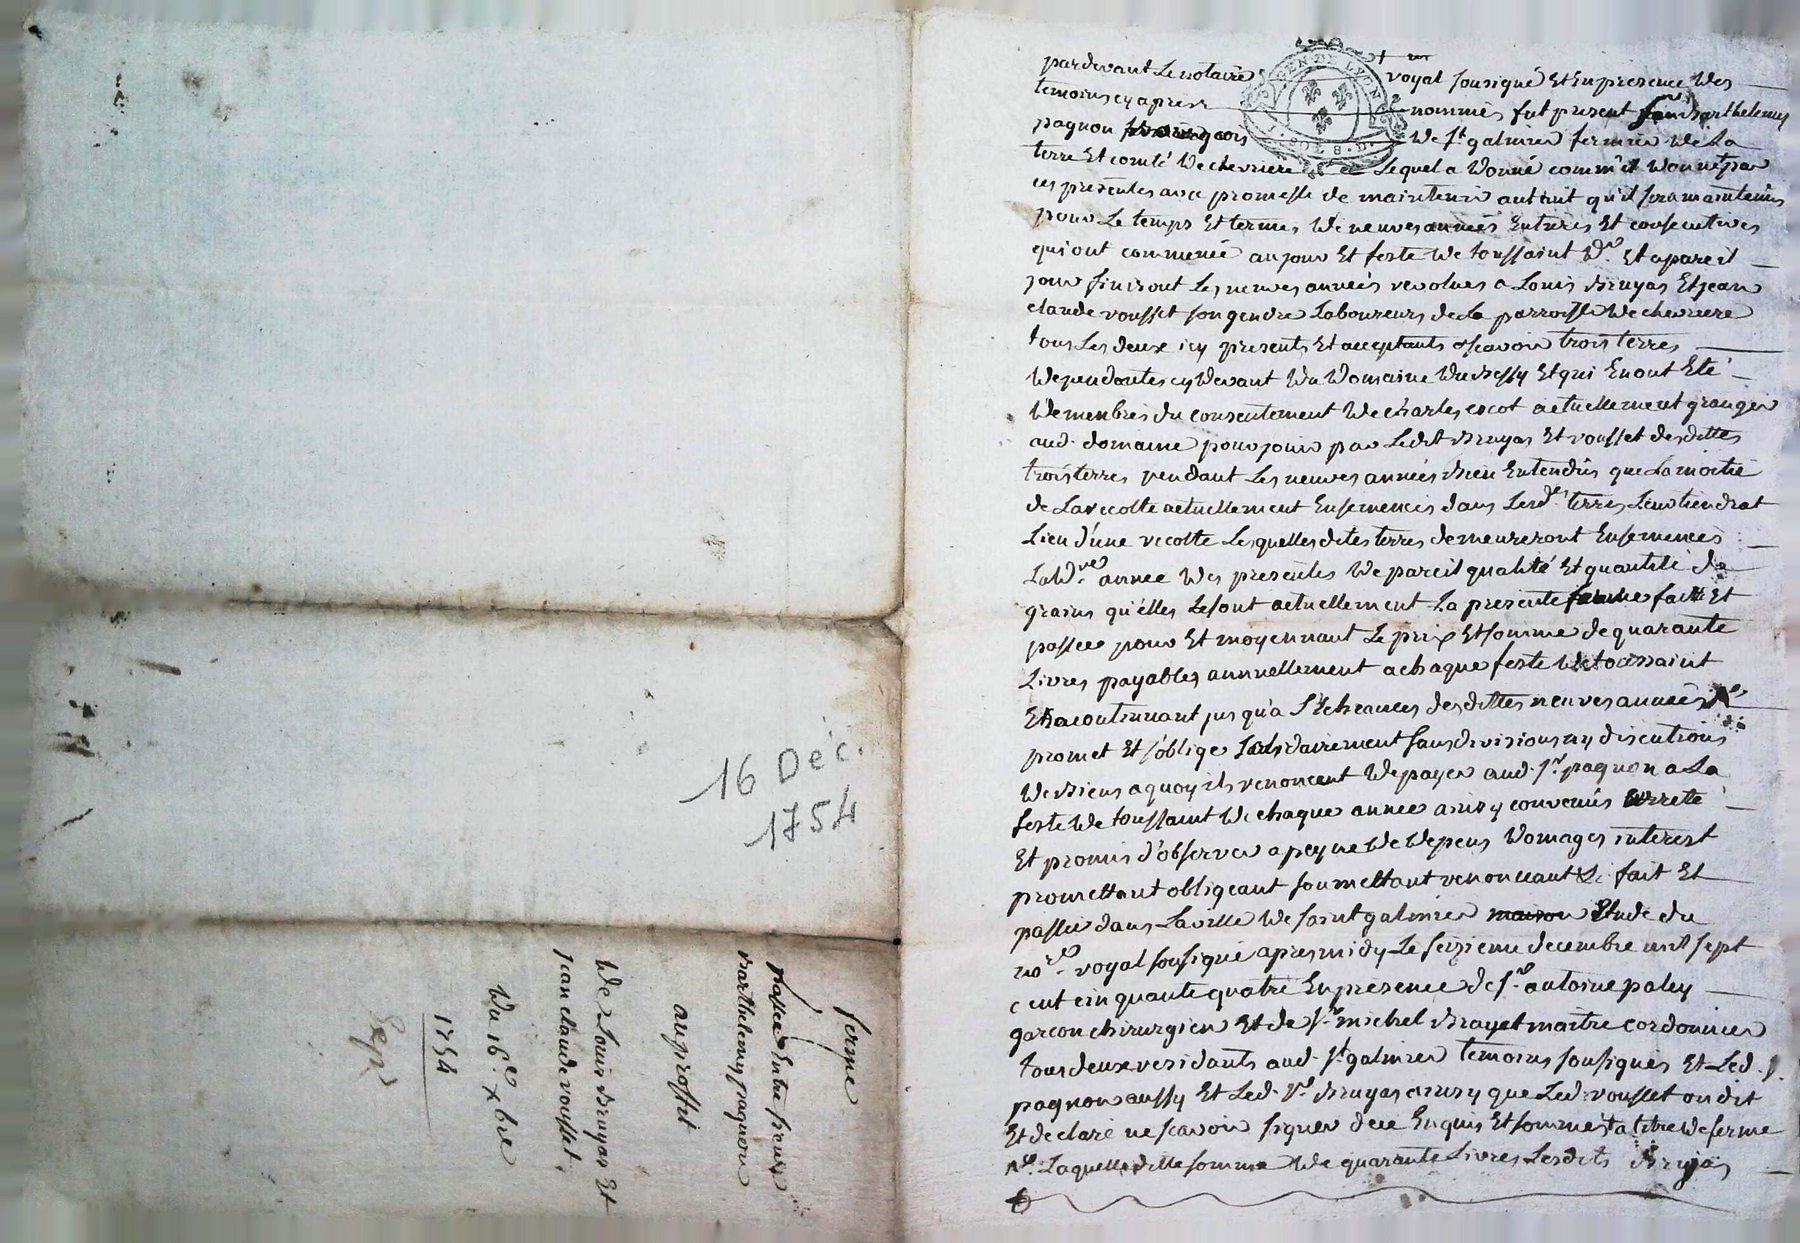 GEN DE LYON
SOL 8. D.
pardevant Le notaire royal sousigné Et En presence Des
temoins cy apres nommés fut present Barthelemy
pagnon De St. galmier fermier De La
terre Et comté De chevriere Lequel a Donné comm'il Donne par
ces presentes avec promesse de maintenir autant qu'il sera maintenus
pour Le temps Et termes De neuves années Entieres Et consecutives
qui ont commencé au jour Et feste De toussaint Dr. Et a pareil
jour finiront Les neuves années revolues a Louis Bruyas Et jean
claude rousset son gendre Laboureurs de La parroisse De chevriere
tous Les deux icy presents Et acceptants scavoir trois terres
Dependantes cy Devant Du Domaine Du Bessy Et qui En ont Eté
Demenbrés du consentement De charles escot actuellement granger
aud. domaine pour jouir par Ledit Bruyas Et rousset desdittes
trois terres pendant Les neuves années Bien Entendus que La moitié
de La recolte actuellement Ensemencés dans Lesd. terres Leur tiendrat
Lieu d'une recolte Lesquelles dites terres demeureront Ensemencés
La Dre. année Des presentes De pareil qualité Et quantité de
grains qu'elles Le sont actuellement La presente faitte Et
passée pour Et moyennant Le prix Et somme de quarante
Livres payables annuellement a chaque feste De toussaint
Et a continuant jusqu'a L'Echeances desdittes neuves années
promet Et s'oblige solidairement sans divisions ny discutions
De Biens a quoy ils renoncent De payer aud. Sr. pagnon a La
feste De toussaint De chaque annee ainsy convenus arreté
Et promis d'observer a peyne De Depens Domages interest
promettant obligeant soumettant renonceant &c fait Et
passée dans La ville De saint galmier Etude du
nore. royal sousigné apres midy Le seizieme decembre mil sept
cent cinquante quatre En presence de Sr. antoine paley
garcon chirurgien Et de Sr. michel Brayet maitre cordonnier
tous deux residants aud. St. galmier temoins sousignés Et Led. S.
pagnon aussy Et Led. Sr. Bruyas ainsy que Led. rousset on dit
Et declaré ne scavoir signer de ce Enquis Et sommés a titre De ferme
Laquelle ditte somme De quarante Livres Lesdits Bruyas
16 Déc.
1754
ferme
passée Entre sieur
Barthelemy pagnon
au proffit
De Louis Bruyas Et
jean claude rousset
Du 16e. xbre
1754